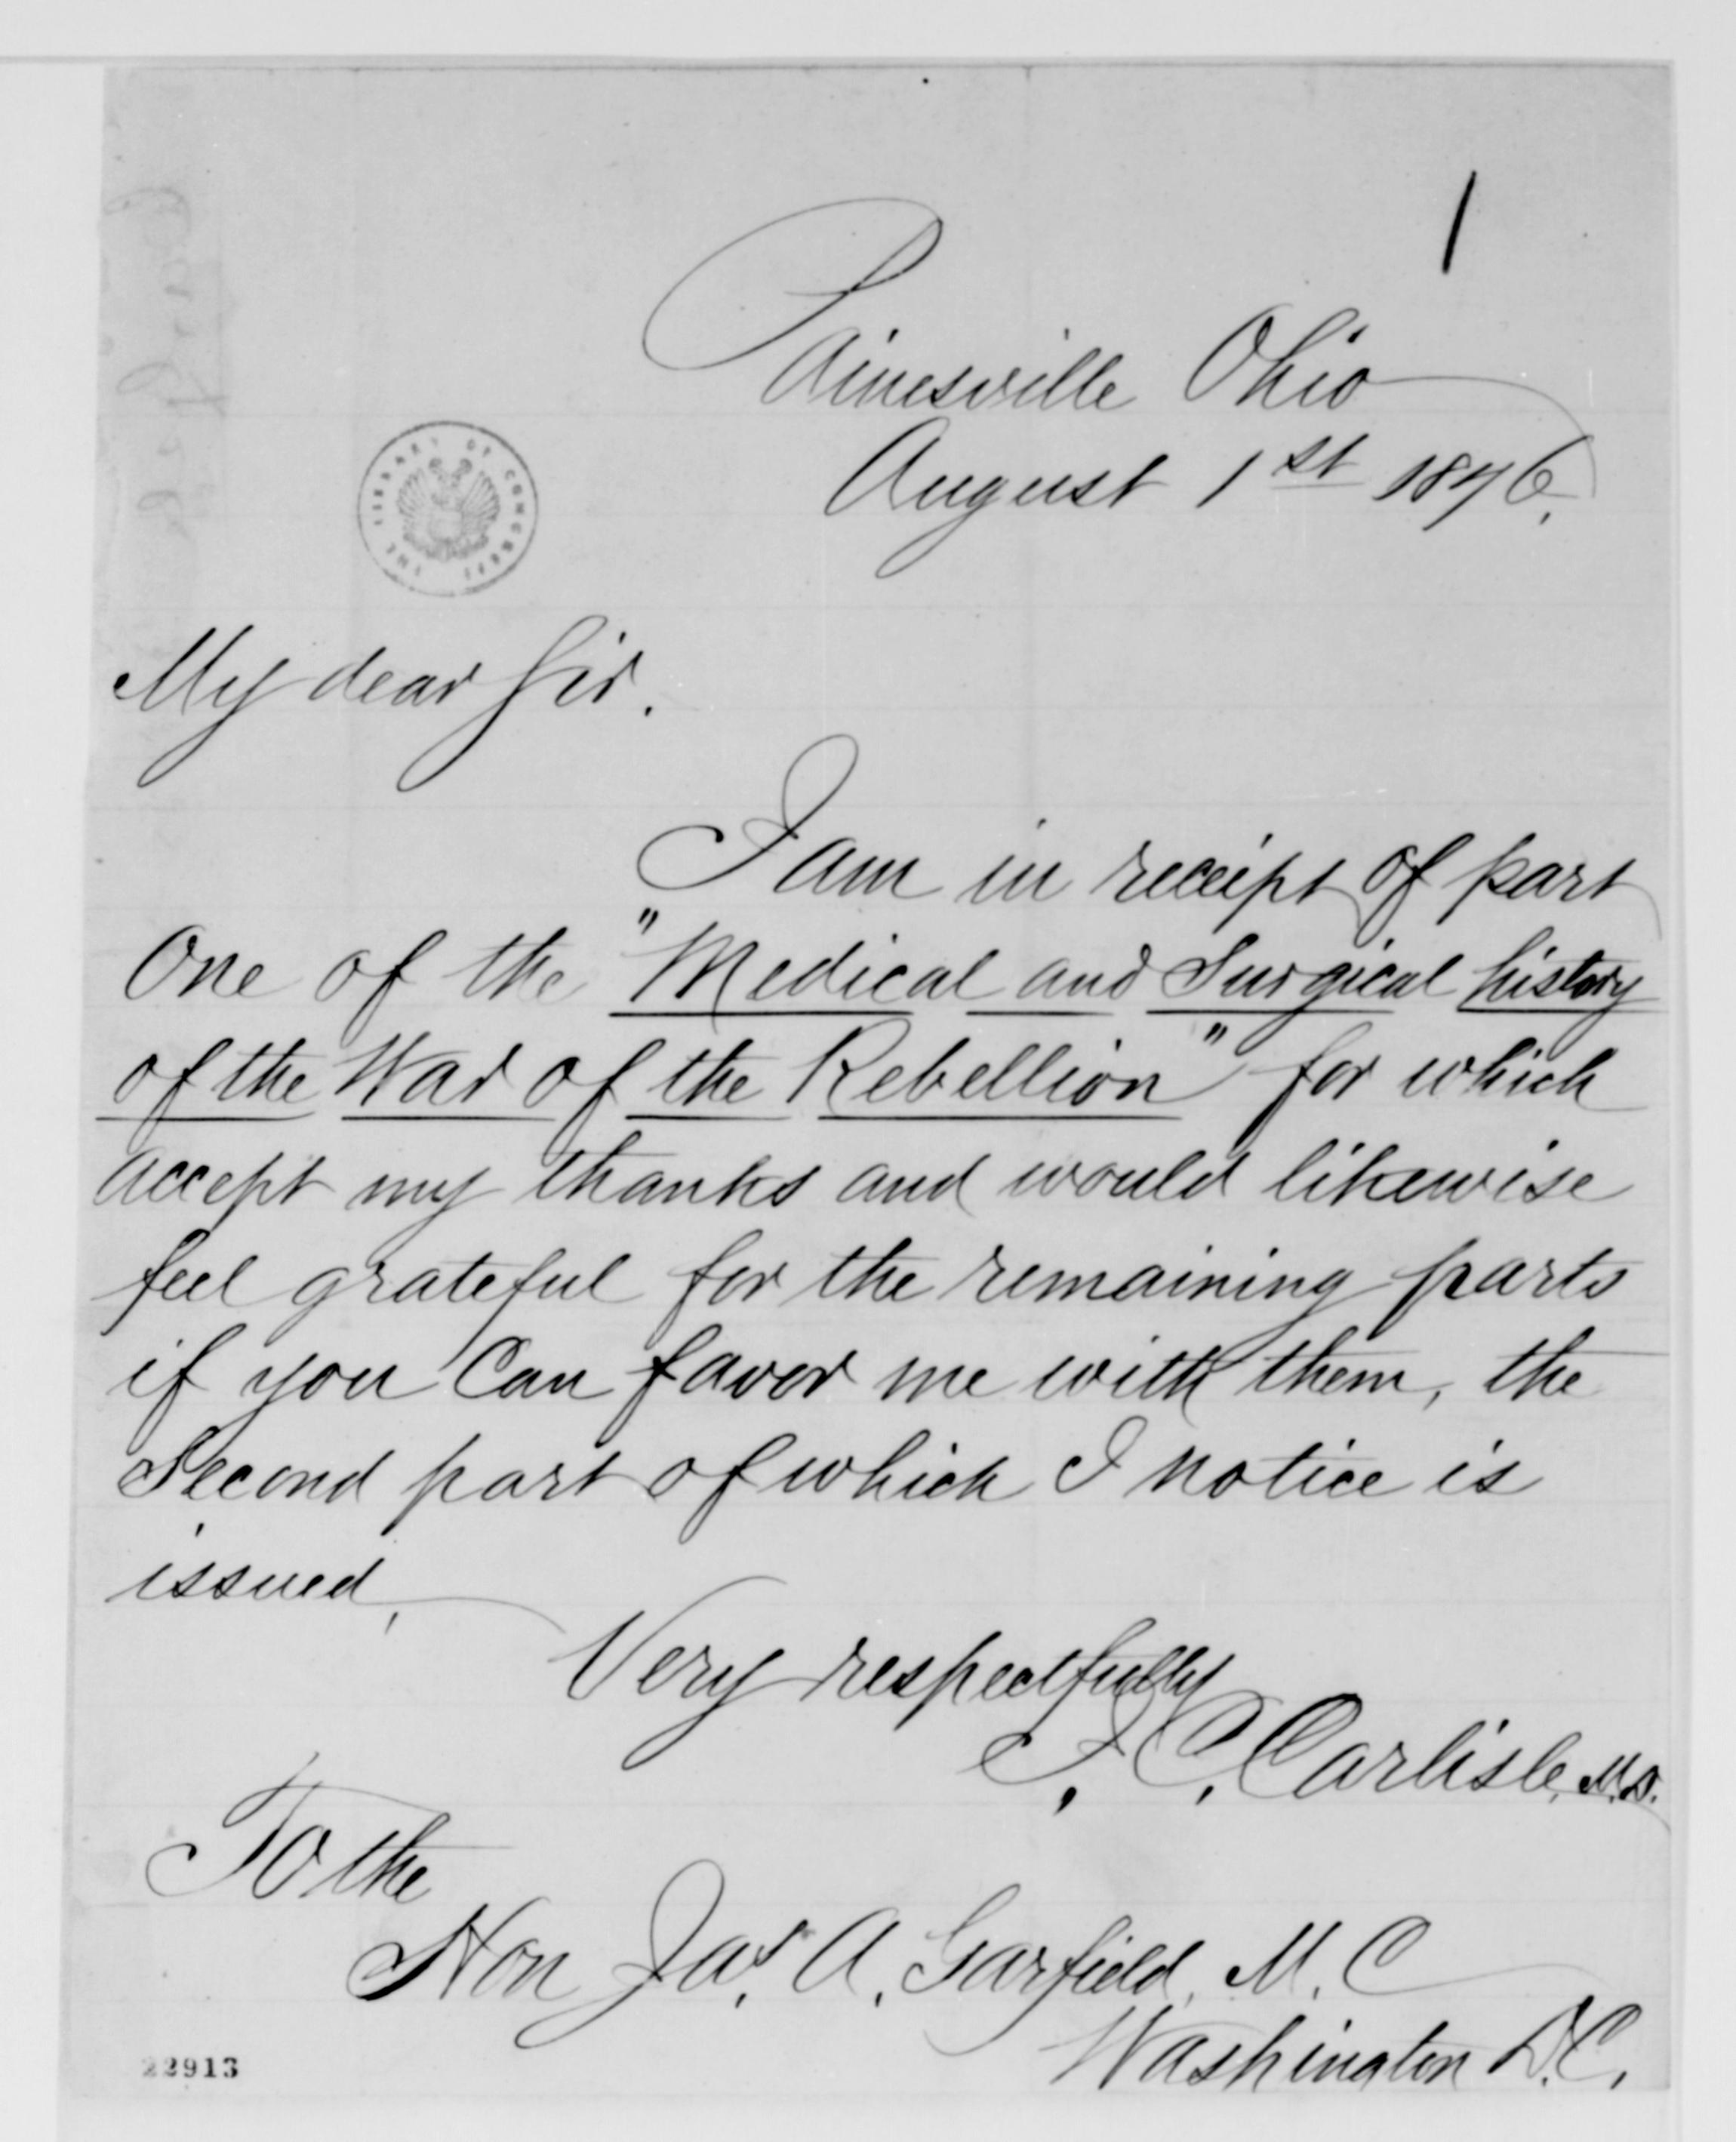 1
Painesville Ohio
August 1st 1876.
THE LIBRARY OF CONGRESS
My dear Sir.
I am in receipt of part
One of the "Medical and Surgical history
of the War of the Rebellion" for which
accept my thanks and would likewise
feel grateful for the remaining parts
if you Can favor me with them, the
Second part of which I notice is
issued,
Very respectfully
J. C. Carlisle, M.D.
To the
Hon Jas. A. Garfield, M. C
Washington D.C.
22913